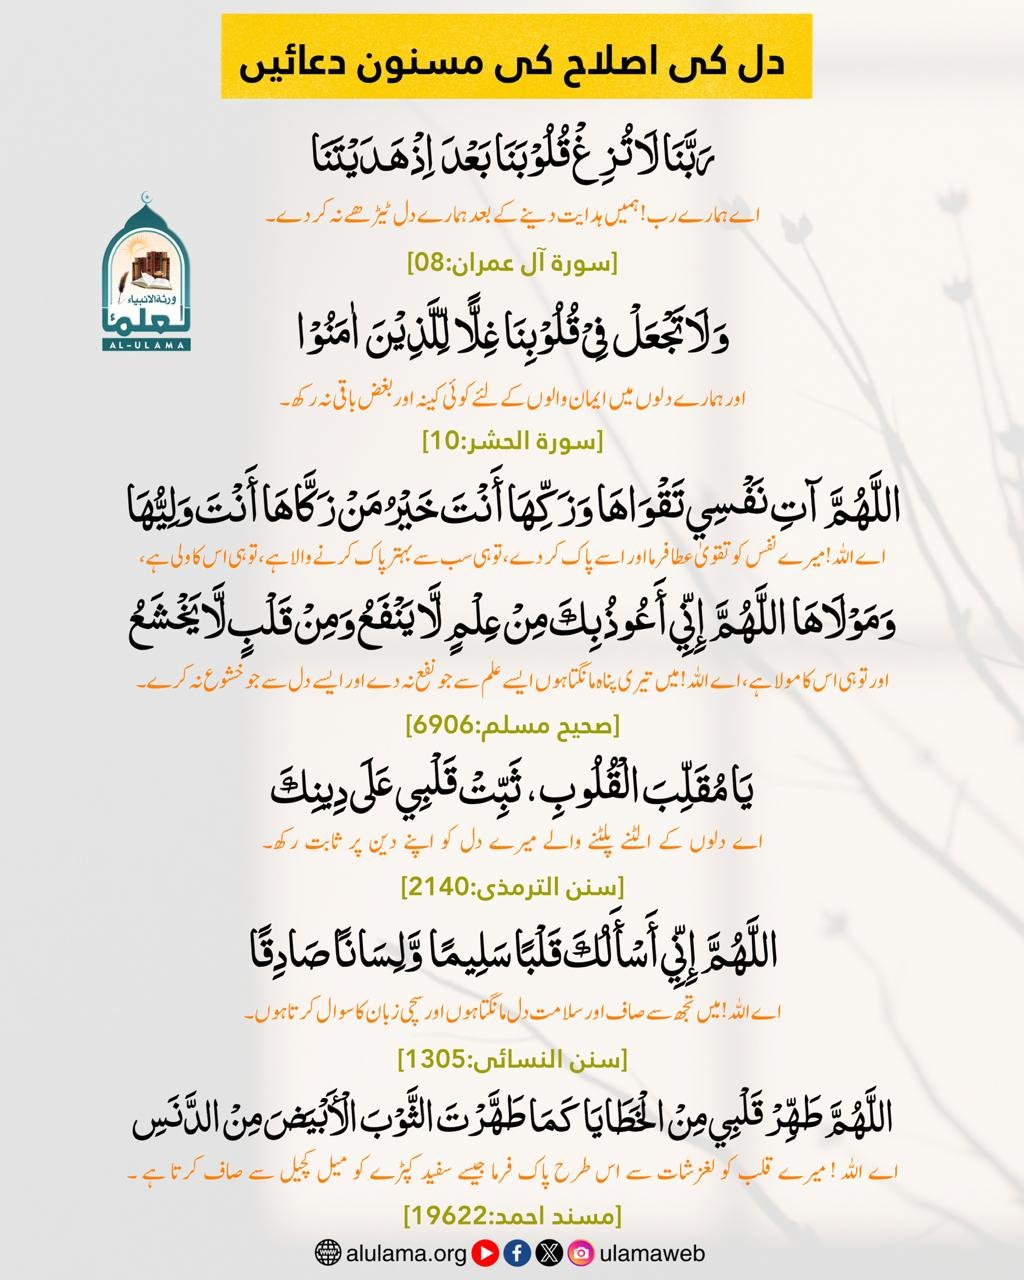 دل کی اصلاح کی مسنون دعائیں
رَبَّنَا لَا تُزِغْ قُلُوْبَنَا بَعْدَ اِذْ هَدَيْتَنَا
اے ہمارے رب! ہمیں ہدایت دینے کے بعد ہمارے دل ٹیڑھے نہ کر دے۔
[سورۃ آل عمران:08]
ورثة الانبیاء
العلماء
AL-ULAMA
وَلَا تَجْعَلْ فِيْ قُلُوْبِنَا غِلًّا لِّلَّذِيْنَ اٰمَنُوْا
اور ہمارے دلوں میں ایمان والوں کے لئے کوئی کینہ اور بغض باقی نہ رکھ۔
[سورۃ الحشر:10]
اللَّهُمَّ آتِ نَفْسِي تَقْوَاهَا وَزَكِّهَا أَنْتَ خَيْرُ مَنْ زَكَّاهَا أَنْتَ وَلِيُّهَا
اے اللہ! میرے نفس کو تقویٰ عطا فرما اور اسے پاک کر دے، تو ہی سب سے بہتر پاک کرنے والا ہے، تو ہی اس کا ولی ہے،
وَمَوْلَاهَا اللَّهُمَّ إِنِّي أَعُوذُ بِكَ مِنْ عِلْمٍ لَّا يَنْفَعُ وَمِنْ قَلْبٍ لَّا يَخْشَعُ
اور تو ہی اس کا مولا ہے، اے اللہ! میں تیری پناہ مانگتا ہوں ایسے علم سے جو نفع نہ دے اور ایسے دل سے جو خشوع نہ کرے۔
[صحیح مسلم:6906]
يَا مُقَلِّبَ الْقُلُوبِ، ثَبِّتْ قَلْبِي عَلَى دِينِكَ
اے دلوں کے الٹنے پلٹنے والے میرے دل کو اپنے دین پر ثابت رکھ۔
[سنن الترمذی:2140]
اللَّهُمَّ إِنِّي أَسْأَلُكَ قَلْبًا سَلِيمًا وَّلِسَانًا صَادِقًا
اے اللہ! میں تجھ سے صاف اور سلامت دل مانگتا ہوں اور سچی زبان کا سوال کرتا ہوں۔
[سنن النسائی:1305]
اللَّهُمَّ طَهِّرْ قَلْبِي مِنْ الْخَطَايَا كَمَا طَهَّرْتَ الثَّوْبَ الْأَبْيَضَ مِنْ الدَّنَسِ
اے اللہ! میرے قلب کو لغزشات سے اس طرح پاک فرما جیسے سفید کپڑے کو میل کچیل سے صاف کرتا ہے۔
[مسند احمد:19622]
alulama.org ulamaweb